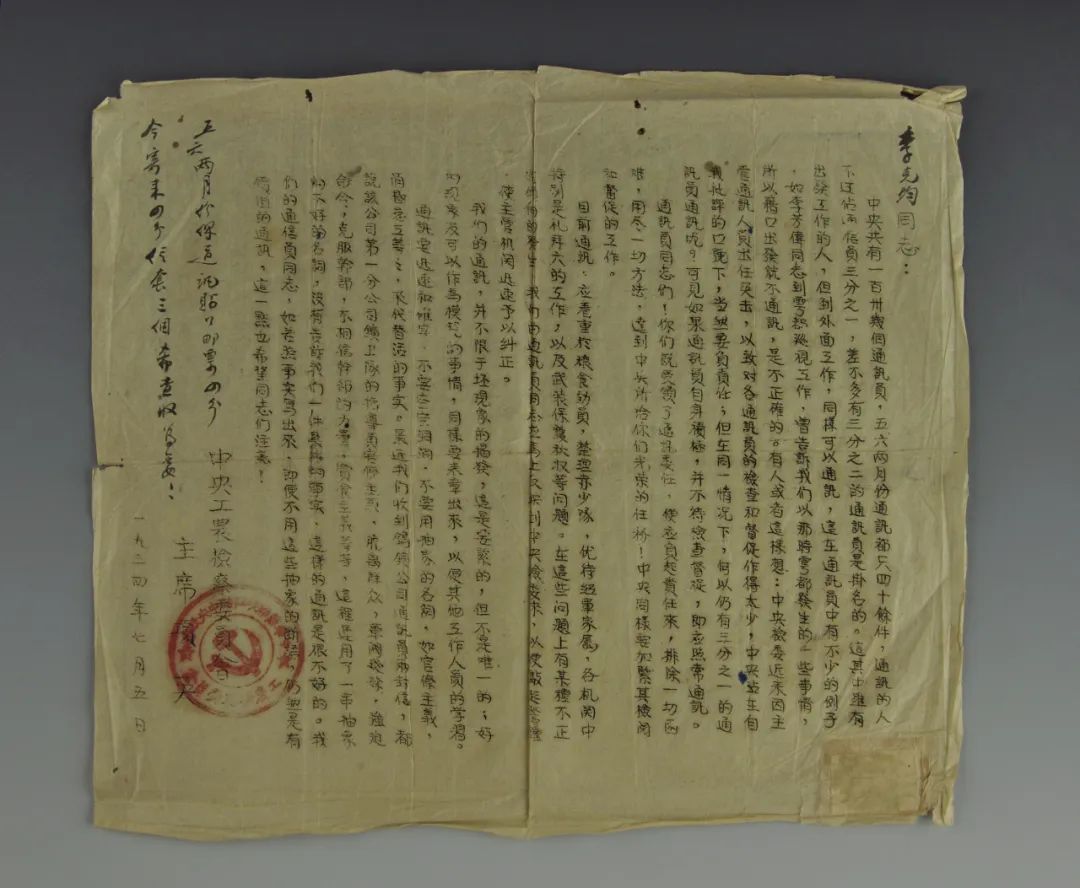 李克均同志：
中央共有一百卅幾個通訊員，五六兩月份通訊都只四十餘件，通訊的人
下过佔函信員三分之一，差不多有三分之二的通訊員是掛名的。這其中雖有
出發工作的人，但到外面工作，同樣可以通訊，這在通訊員中有不少的例子
，如李芳偉同志到雩都巡視工作，曾告訴我們以那時雩都發生的一些事情，
所以藉口出發就不通訊，是不正確的。有人或者這樣想：中央檢委近來因主
要通訊人員出任突击，以致对各通訊員的檢查和督促作得太少，中央站在自
我批評的口號下，当然要負責任；但在同一情况下，何以仍有三分之一的通
訊員通訊呢？可見如果通訊員自身積極，并不待檢查督促，即应照常通訊。
通訊員同志們！你们既受領了通訊委任，便应負起責任來，排除一切困
难，用尽一切方法，達到中央所给你们光荣的任務！中央同樣要加緊其檢閱
和督促的工作。
目前通訊：应着重於粮食動員，整理赤少隊，优待紅軍家屬，各机関中
特别是礼拜六的工作，以及武装保護秋收等问题。在這些问题上有某種不正
，使主管机関迅速予以糾正。
我们的通訊，并不限于坯現象的揭發，這是要緊的，但不是唯一的；好
的現象及可以作為模范的事情，同樣要表章出來，以便其他工作人員的学習。
通訊要迅速和確实，不要空空洞洞，不要用抽象的名詞，如官僚主義，
消極怠工等之，來代替活的事实。最近我们收到鎢礦公司通訊員兩封信，都
說該公司第一分公司鑛山隊的指導員官僚主義，脱離群众，
命令，克服幹部，不相信幹部的力量，貪食主義等等，這裡是用了一串抽象
的不好的名詞，沒有告訴我们一件具體的事实，這樣的通訊是很不好的。我
们的通信員同志，如若照事实写出來，即使不用這些抽象的断語，仍然是有
價值的通訊，這一點也希望同志们注意！
中央工農檢察委員會
主席
一九三四年七月五日
五六兩月份保送訊貼了郵票四分
今寄來四分信套三個希查收為妥！